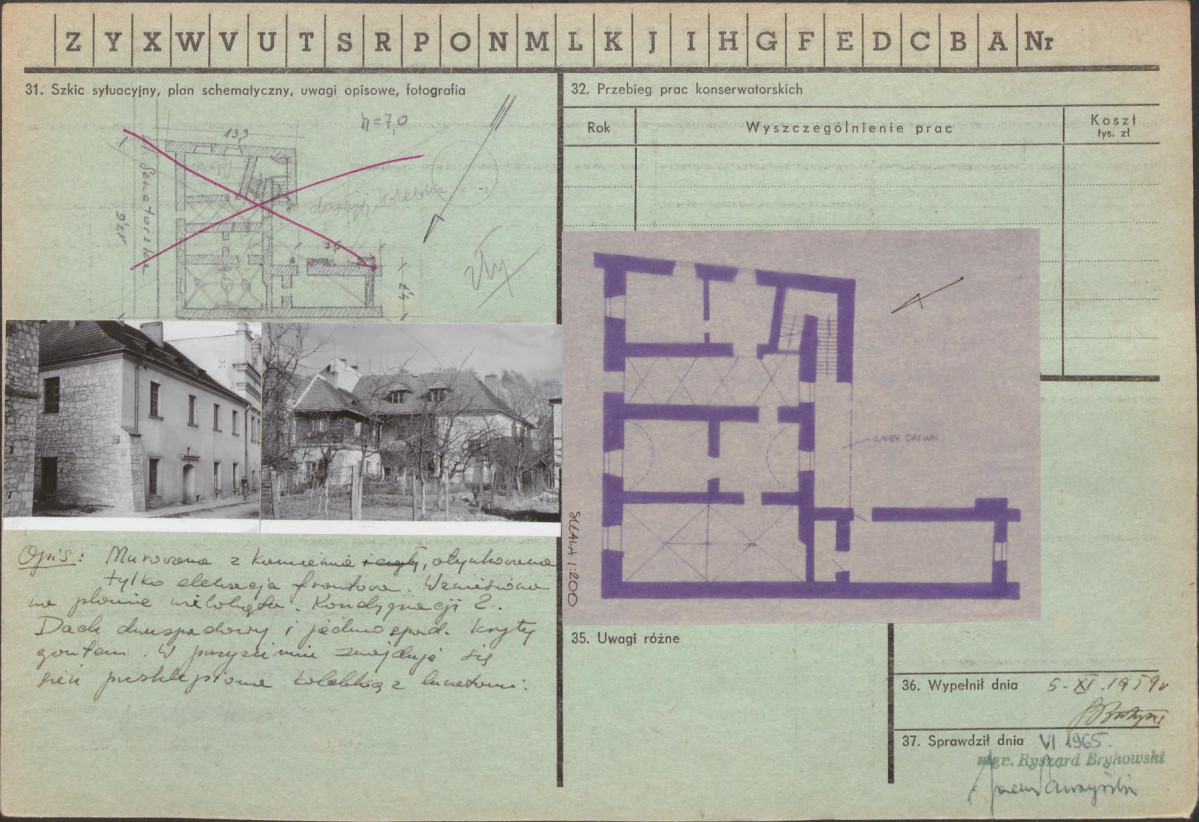 Z Y X W V U T S R P O N M L K J I H G F E D C B A Nr
31. Szkic sytuacyjny, plan schematyczny, uwagi opisowe, fotografia
13,3
h=7,0
Senatorska
zły
7,4
Opis: Murowana z kamienia i cegły, otynkowana
tylko elewacja frontowa. Wzniesiona
na planie wieloboku. Kondygnacji 2.
Dach dwuspadowy i jednospad. kryty
gontem. W przyziemiu znajduje się
sień przesklepiona kolebką z lunetami.
32. Przebieg prac konserwatorskich
Rok
Wyszczególnienie prac
Koszt
tys. zł
GANEK DREWN
SKALA 1:200
35. Uwagi różne
36. Wypełnił dnia 5-XI.1959r
37. Sprawdził dnia VI 1965.
mgr. Ryszard Brykowski